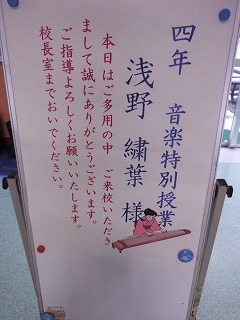 四年　音楽特別授業
浅野　繍葉　様
本日はご多用の中　ご来校いただき
まして誠にありがとうございます。
ご指導よろしくお願いいたします。
校長室までおいでください。